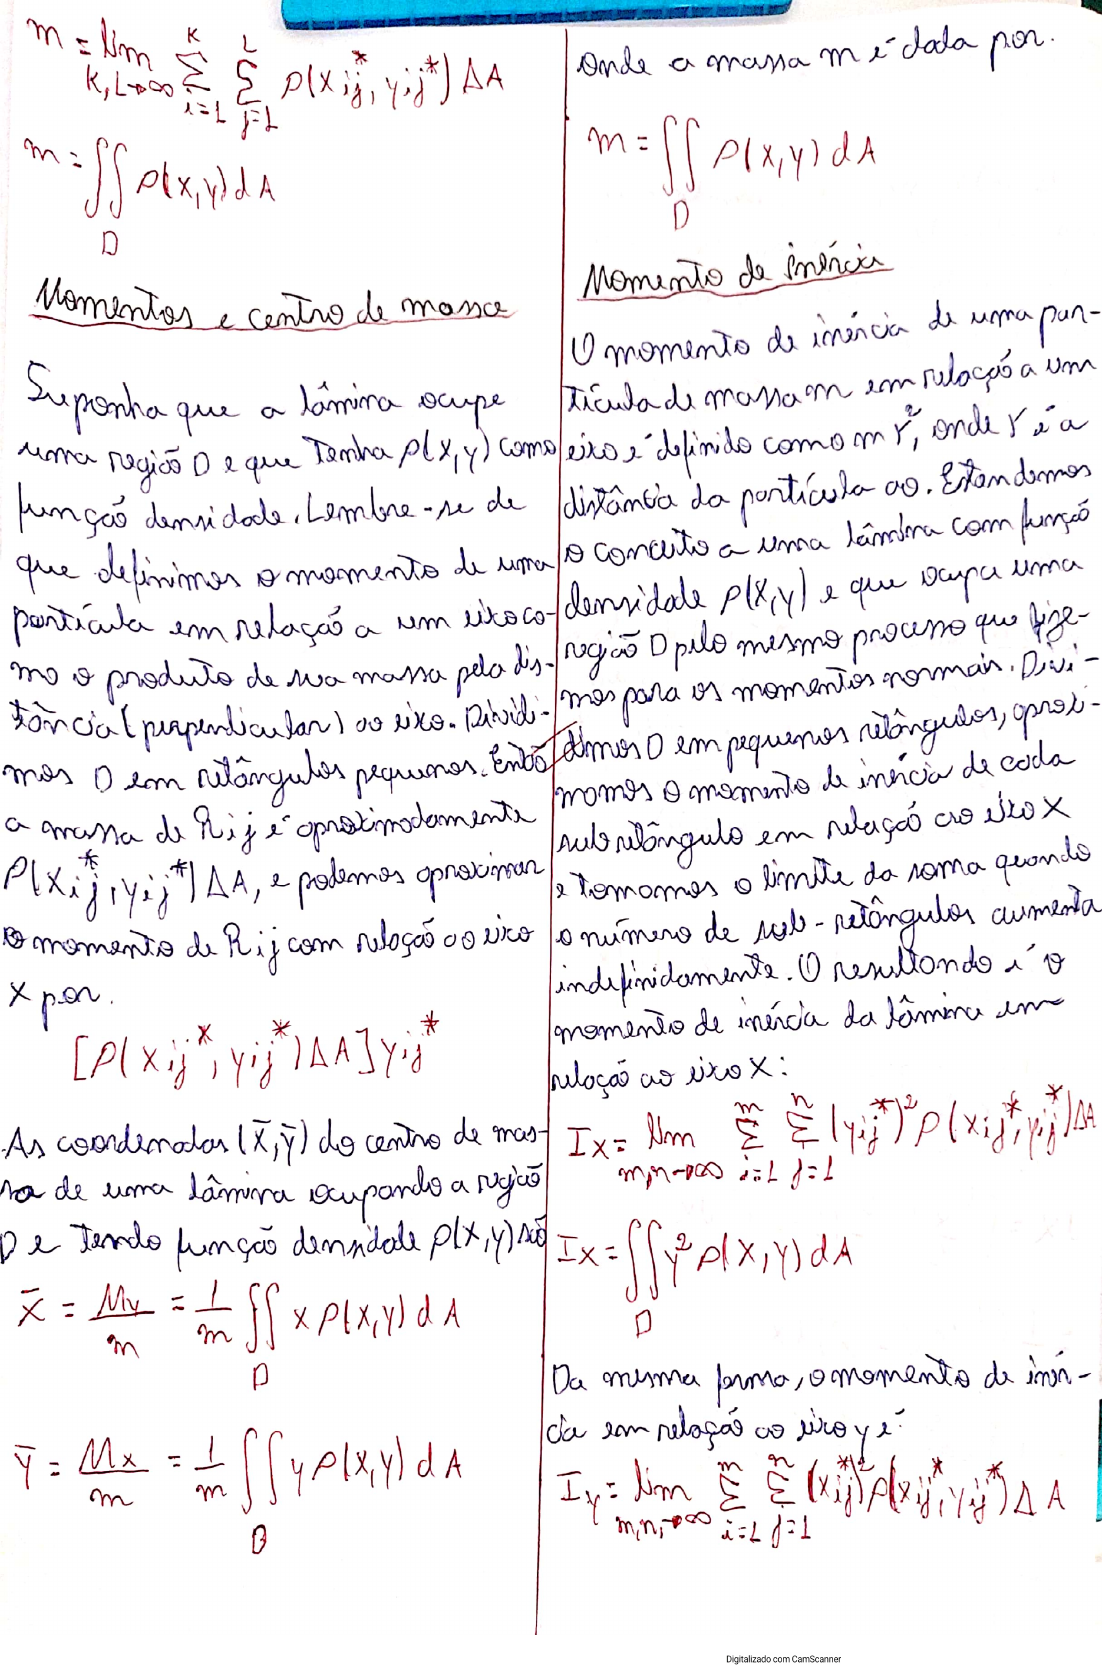 m = lim Σ Σ ρ(xij*, yij*) ΔA
K,L→∞ i=1 j=1
K L
m = ∬ ρ(x,y) dA
D
Momentos e centro de massa
Suponha que a lâmina ocupe
uma região D e que Tenha ρ(x,y) como
função densidade. Lembre-se de
que definimos o momento de uma
partícula em relação a um eixo co-
mo o produto de sua massa pela dis-
tância (perpendicular) ao eixo. Dividi-
mos D em retângulos pequenos. Então
a massa de Rij é aproximadamente
ρ(xij*, yij*) ΔA, e podemos aproximar
o momento de Rij com relação ao eixo
X por.
[ρ(xij*, yij*) ΔA] yij*
As coordenadas (x̄, ȳ) do centro de mas-
sa de uma lâmina ocupando a região
D e Tendo função densidade ρ(x,y) são
x̄ = My/m = 1/m ∬ x ρ(x,y) dA
D
ȳ = Mx/m = 1/m ∬ y ρ(x,y) dA
D
onde a massa m é dada por.
m = ∬ ρ(x,y) dA
D
Momento de inércia
O momento de inércia de uma par-
tícula de massa m em relação a um
eixo é definido como mr², onde r é a
distância da partícula ao. Estendemos
o conceito a uma lâmina com função
densidade ρ(x,y) e que ocupa uma
região D pelo mesmo processo que fize-
mos para os momentos normais. Divi-
dimos D em pequenos retângulos, aproxi-
mamos o momento de inércia de cada
subretângulo em relação ao eixo X
e tomamos o limite da soma quando
o número de sub-retângulos aumenta
indefinidamente. O resultando é o
momento de inércia da lâmina em
relação ao eixo X:
m n
Ix = lim Σ Σ (yij*)² ρ(xij*, yij*) ΔA
m,n→∞ i=1 j=1
Ix = ∬ y² ρ(x,y) dA
D
Da mesma forma, o momento de inér-
cia em relação ao eixo y é:
m n
Iy = lim Σ Σ (xij*)² ρ(xij*, yij*) ΔA
m,n,→∞ i=1 j=1
Digitalizado com CamScanner